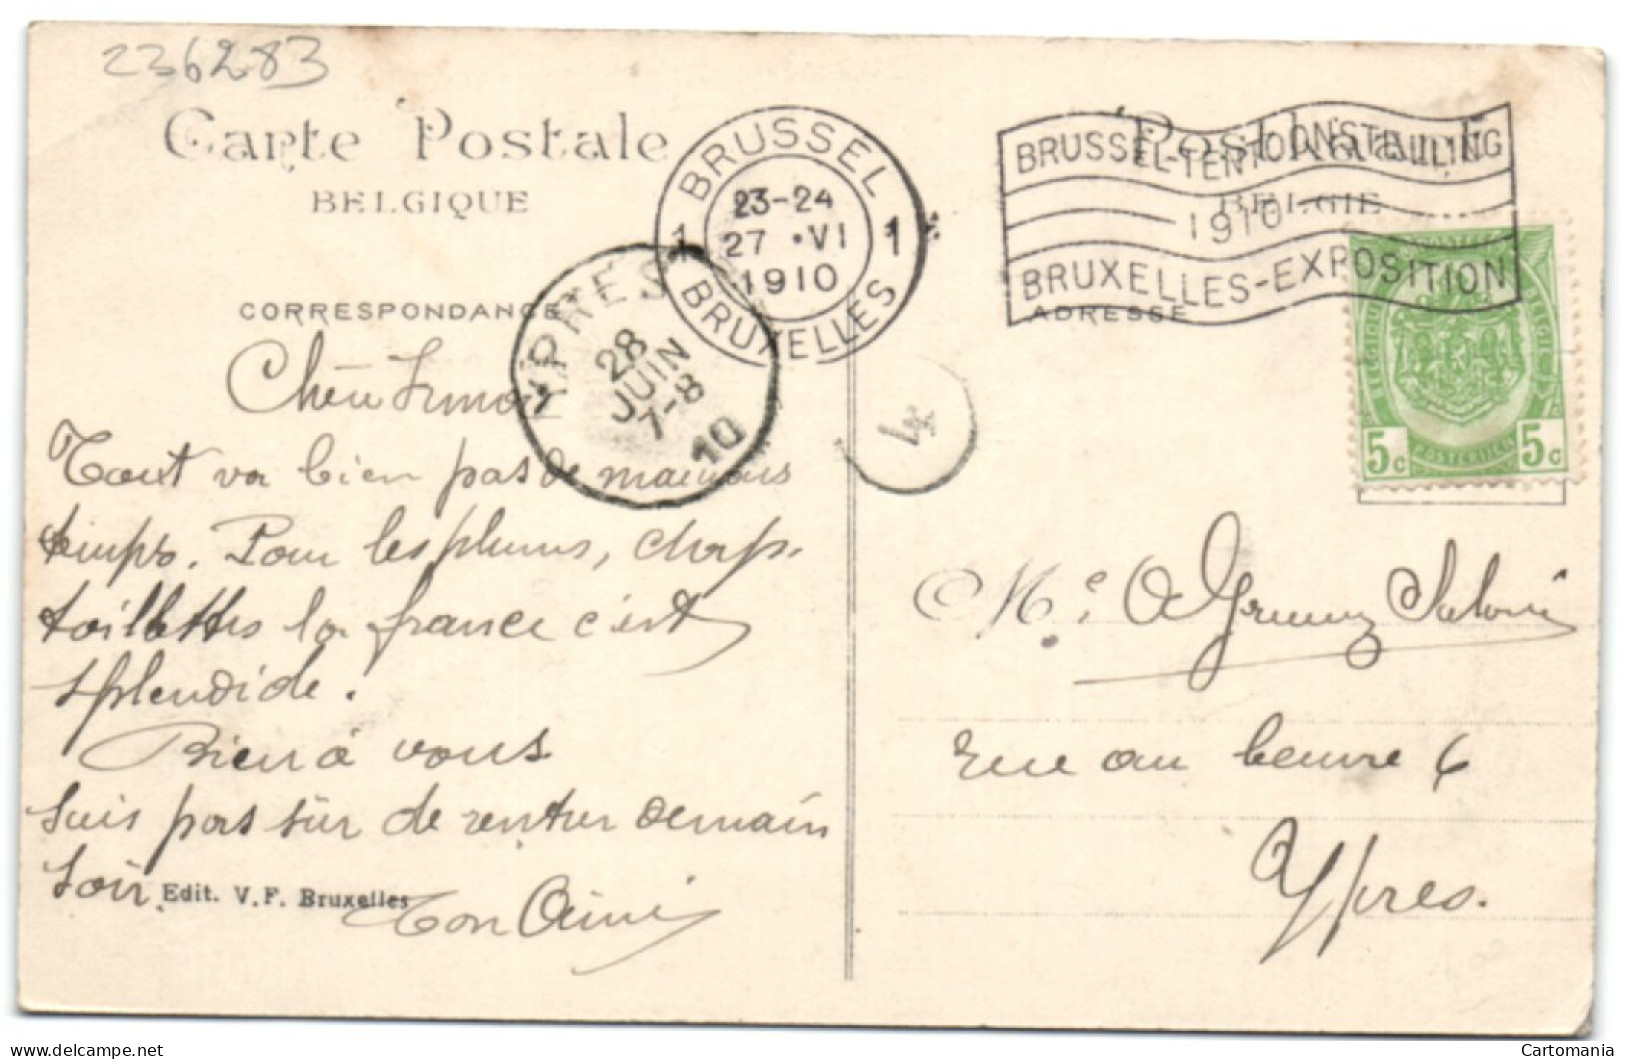 236283
Carte Postale
BELGIQUE
CORRESPONDANCE
Postkaart
BELGIE
ADRESSE
BRUSSEL
1 1
23-24
27 • VI
1910
BRUXELLES
BRUSSEL-TENTOONSTELLING
1910
BRUXELLES-EXPOSITION
YPRES
28
JUIN
7-8
10
4
5c 5c
POSTERIJEN
Tout va bien pas de mauvais
temps. Pour les plumes, chap.
toilettes la france c'est
splendide.
Bien à vous
suis pas sûr de rentrer demain
soir.
Ton Aimé
Edit. V. F. Bruxelles
rue au beurre 6
Ypres.
www.delcampe.net
Cartomania